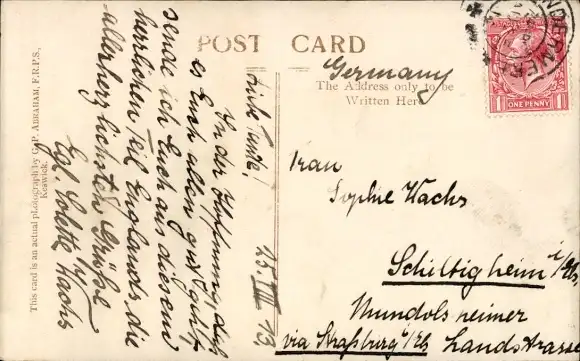 POST CARD
Germany
The Address only to be
Written Here
ONE PENNY
Frau
Sophie Wachs
Schiltigheim i/Els.
Mundolsheimer
via Straßburg i/Els Landstrasse
25. VIII 13
Tante!
In der Hoffnung, daß
es Euch allen gut geht,
sende ich Euch aus diesem
herrlichen Teil Englands die
allerherzlichsten Grüße
Wachs
This card is an actual photograph by G. P. ABRAHAM, F.R.P.S.,
Keswick.